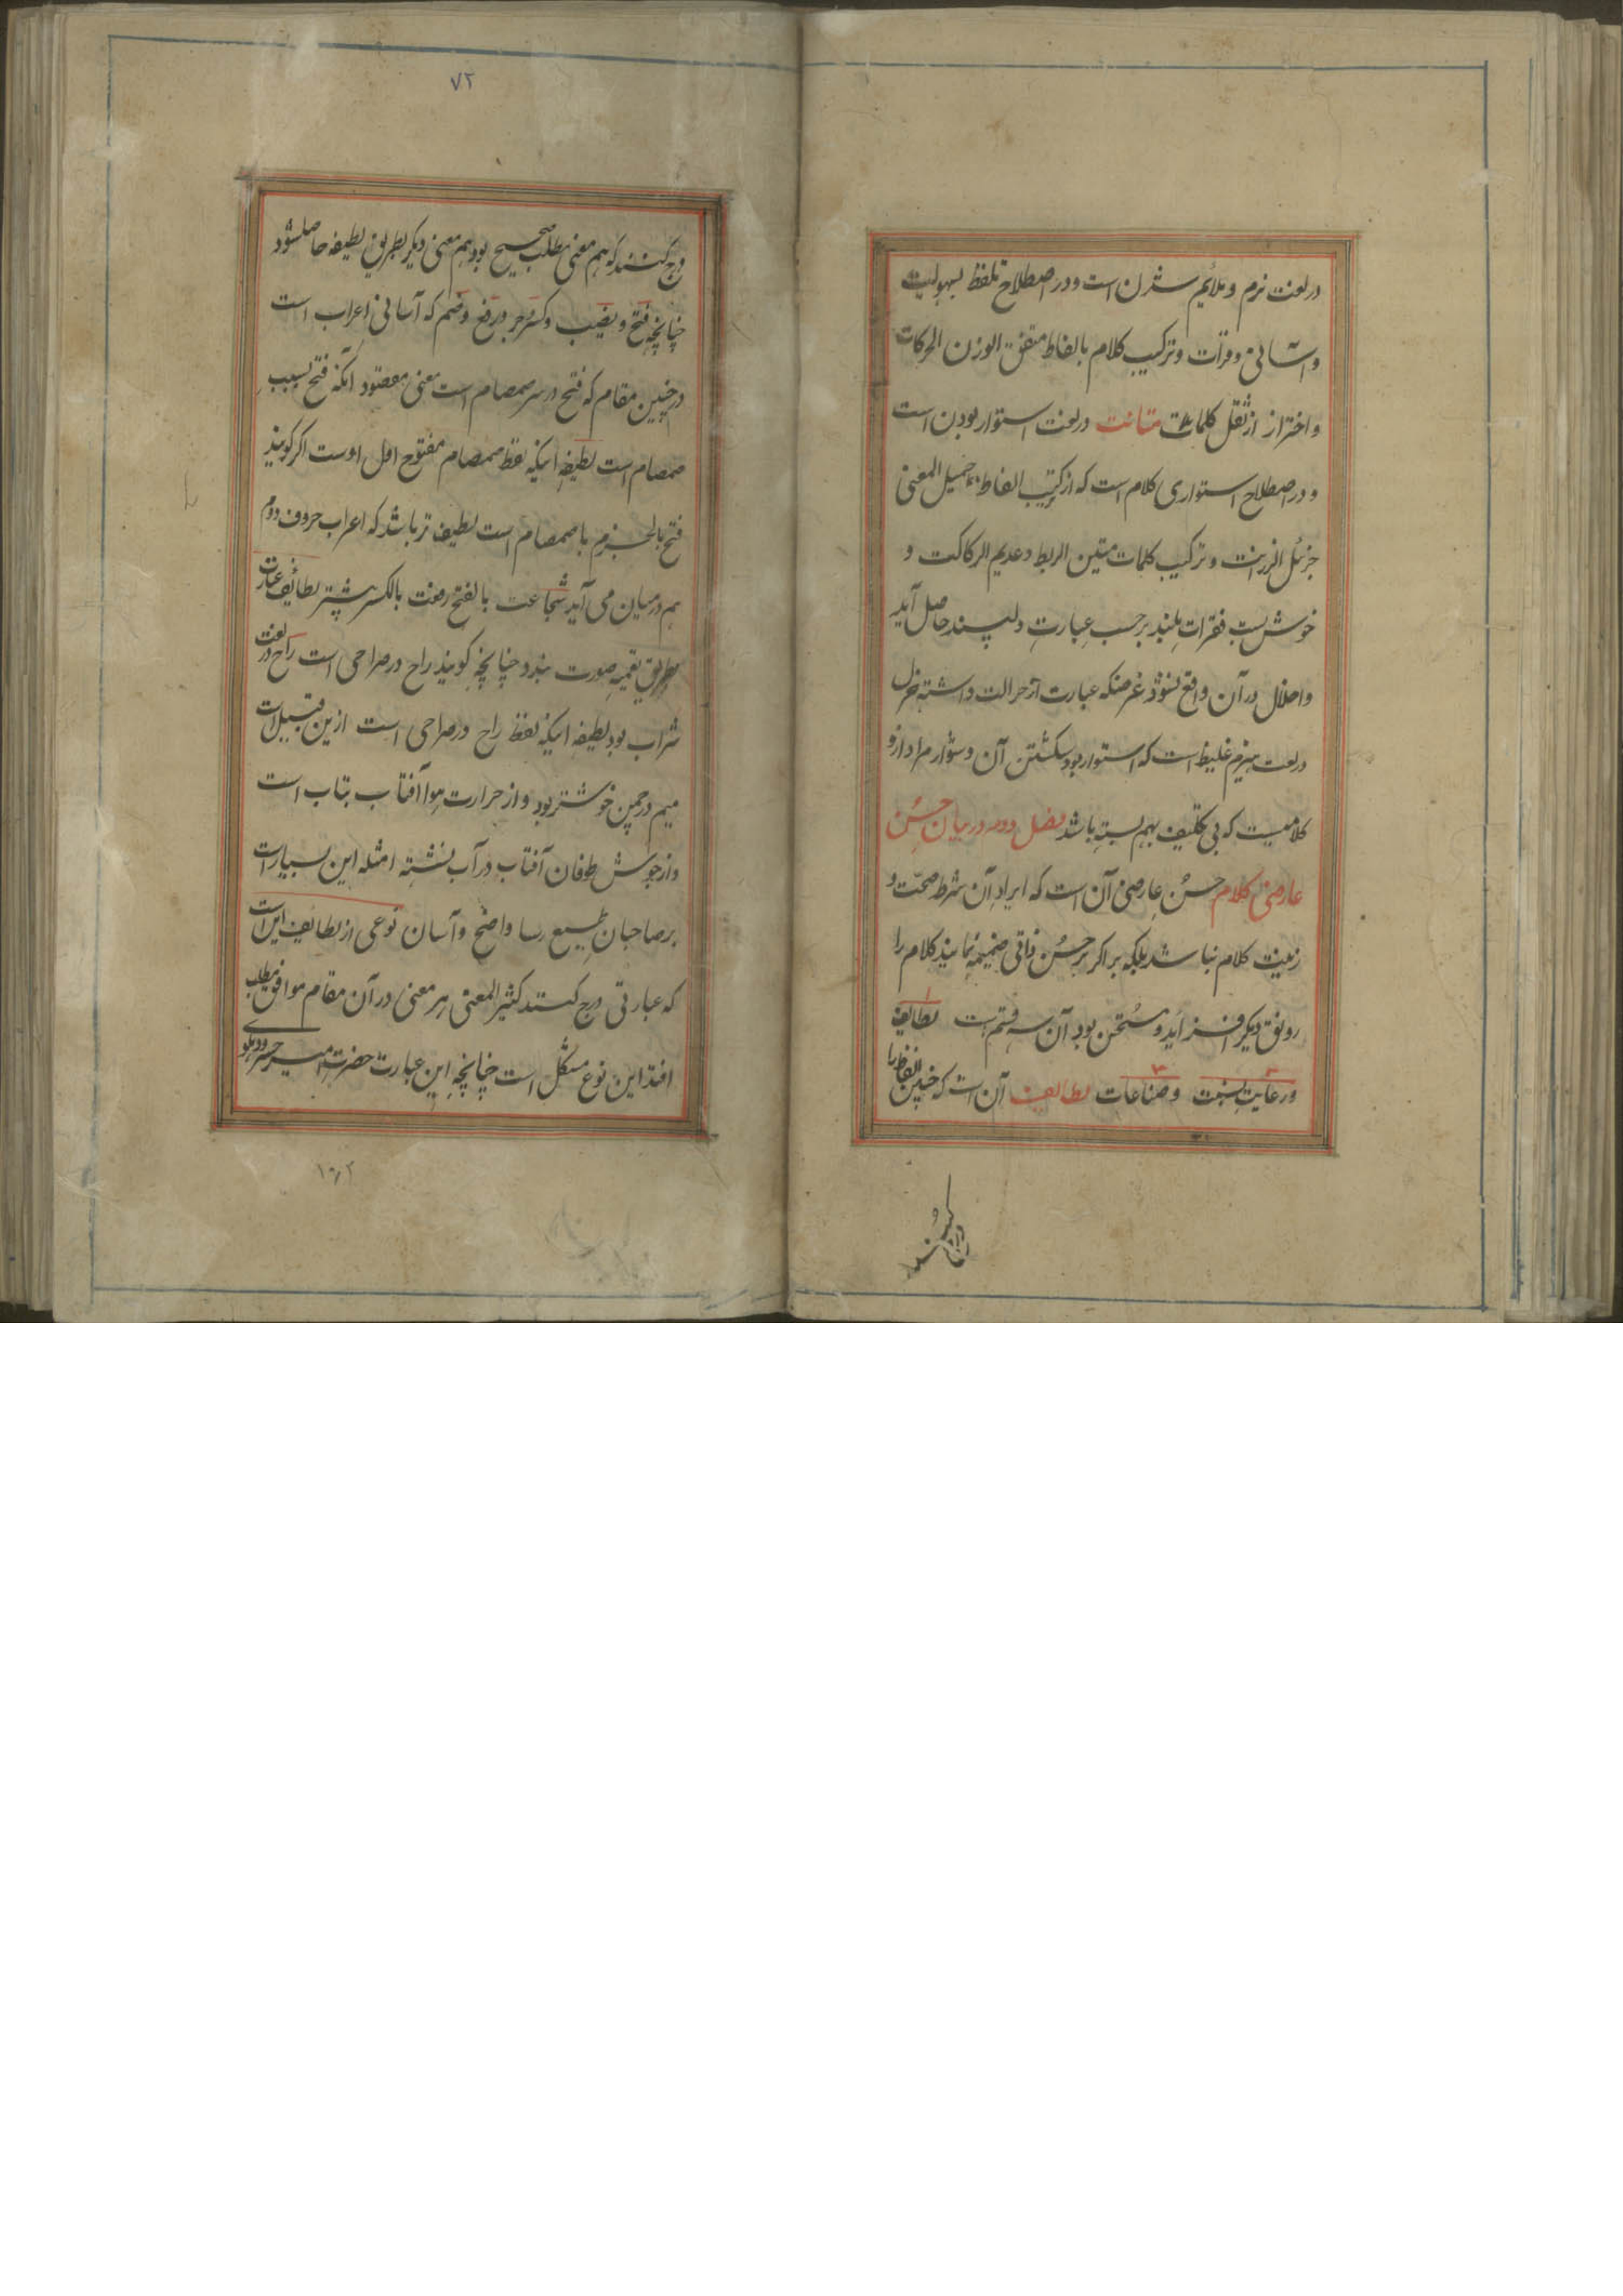 در لغت نرم و ملائم شدن است و در اصطلاح تلفظ بسهولیت
و آسانی و قرأت و ترکیب کلام بالفاظ متفق الوزن الحرکات
و احتراز از ثقل کلمات متانت در لغت استوار بودن است
و در اصطلاح استواری کلام است که از ترکیب الفاظ جمیل المعنی
جزئل الرزانت و ترکیب کلمات متین الربط و عدیم الرکاکت و
خوش بست فقرات بلند بر حسب عبارت دلپسند حاصل آید
و اخلال در آن واقع نشود غرضکه عبارت از جزالت داشته جزل
در لغت هیزم غلیظ است که استوار بود شکستن آن دشوار مراد ازو
کلامیست که بی تکلیف بهم بسته باشد فصل دوم در بیان حسن
عارضی کلام حسن عارضی آن است که ایراد آن شرط صحت و
زینت کلام نباشد بلکه بر اگر بر حسن ذاتی ضمیمه نمایند کلام را
رونق دیگر افزاید و مستحسن بود آن سه قسم است لطایف
و رعایت نسبت و صناعات لطایف آن است که چنین الفاظ را
درج کنند
۷۲
درج کنند که هم معنی مطلب صحیح بود هم معنی دیگر بطریق لطیفه حاصل شود
چنانچه فتح و نصب و کسر و جر و رفع و ضم که آسانی اعراب است
در چنین مقام که فتح در سر صمصام است معنی مقصود آنکه فتح بسبب
صمصام است لطیفه اینکه لفظ صمصام مفتوح اول اوست اگر گویند
فتح بالجزم با صمصام است لطیف تر باشد که اعراب حروف دوم
هم در میان می آید شجاعت بالفتح رفعت بالکسر بیشتر لطائف عبارت
بطریق تعمیه صورت بندد چنانچه گویند راح در صراحی است راح در لغت
شراب بود لطیفه اینکه لفظ راح در صراحی است ازین قبیل است
میم در چمن خوشتر بود و از حرارت هوا آفتاب بتاب است
و از جوش طوفان آفتاب در آب نشسته امثله این بسیار است
بر صاحبان طبع رسا واضح و آسان نوعی از لطایف این است
که عبارتی درج کنند کثیر المعنی هر معنی در آن مقام موافق مطلب
افتد این نوع مشکل است چنانچه این عبارت حضرت امیر خسرو دهلوی
۱۰۲